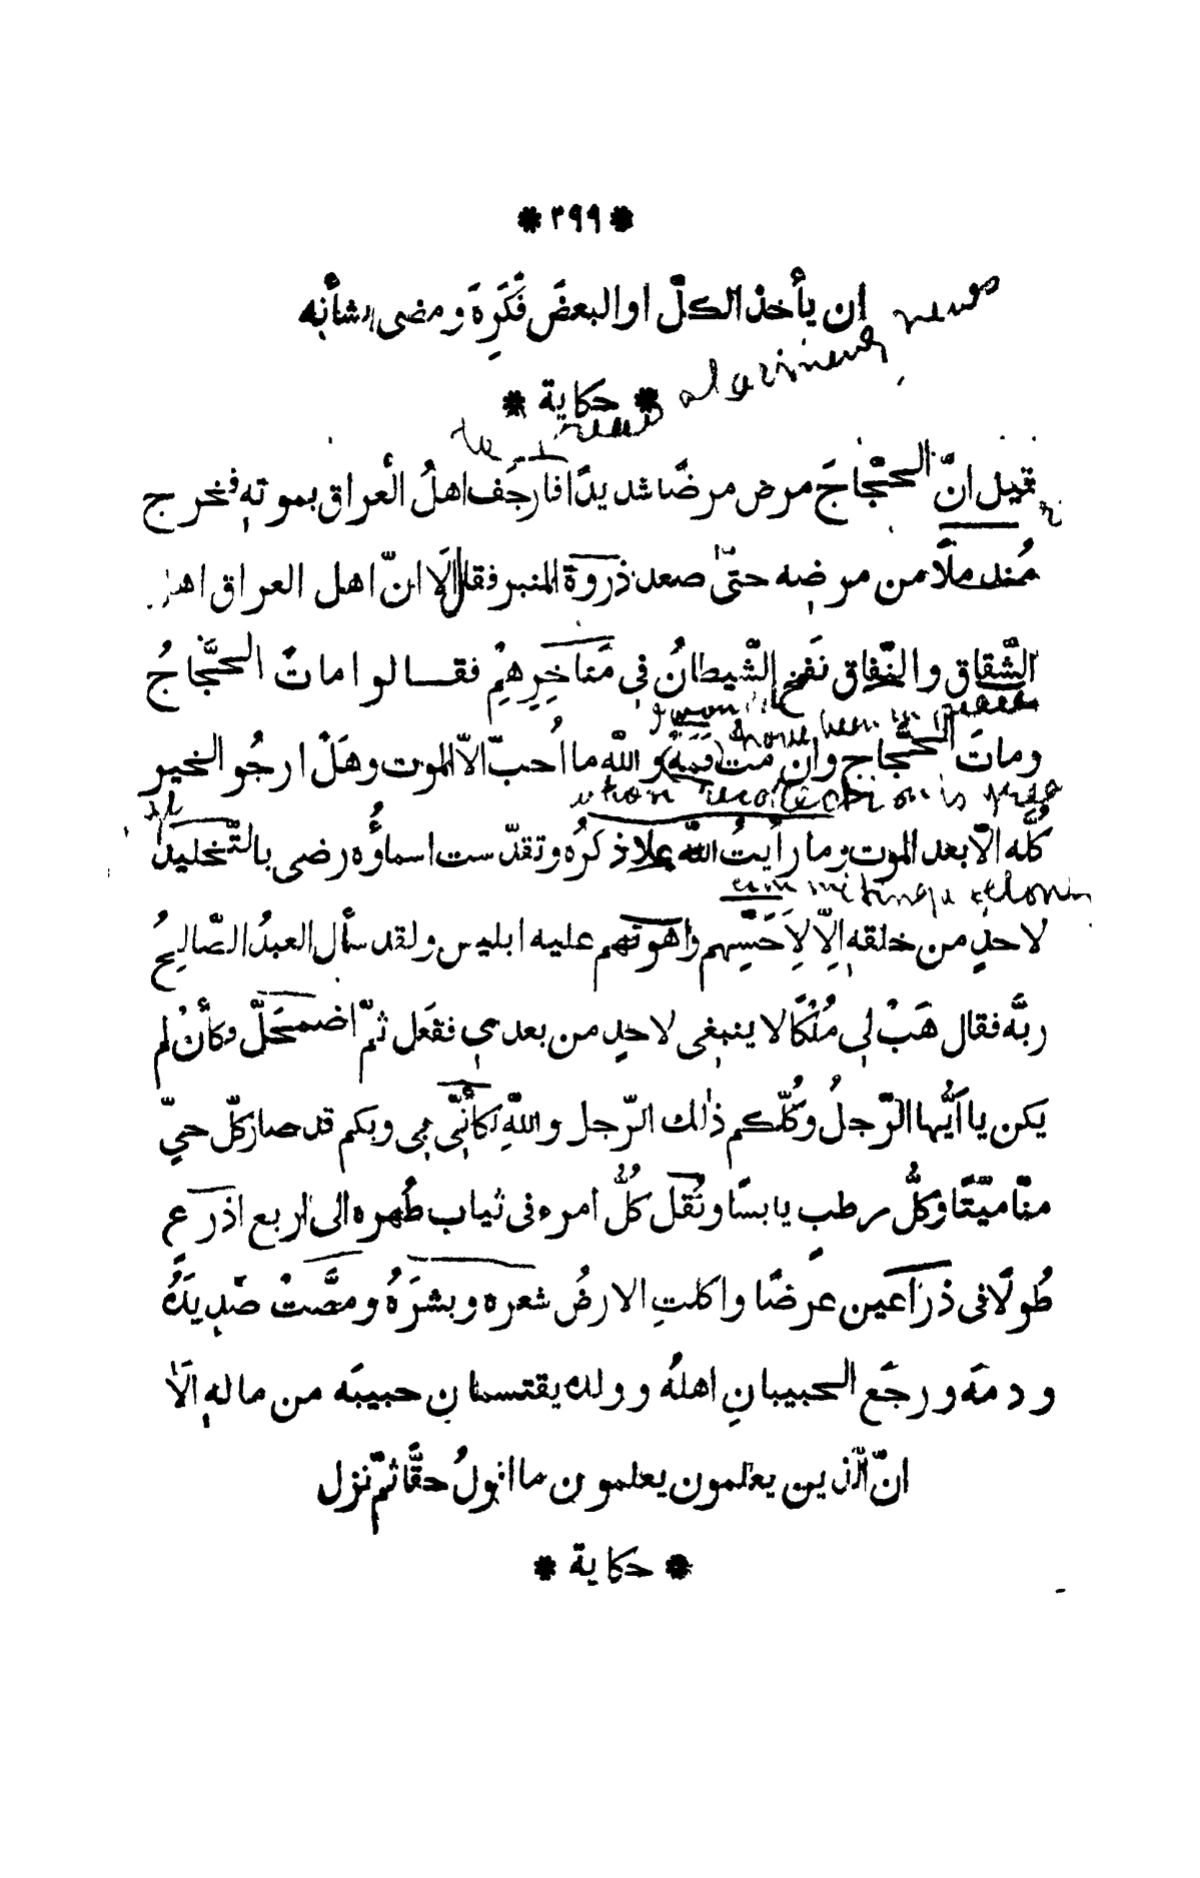 * ٣٩٩ *
ان يأخذ الكلّ او البعضَ فكَرِهَ ومضى لشأنه
* حكاية *
قيل انّ الحجّاجَ مرض مرضًا شديدًا فارجَف اهلُ العراق بموتهِ فخرج
مُندملًا من مرضه حتّى صعد ذروة المنبر فقال الَا انّ اهل العراق اهل
الشّقاق والنّفاق نفخ الشّيطانُ في مَناخِرِهِمْ فقالوا ماتَ الحجّاجُ
وماتَ الحجّاج وان متّ فمَهْ والله ما اُحبّ الّا الموت وهَلْ ارجُو الخير
كُلَّه الّا بعد الموت وما رأيتُ اللّه علا ذكرُه وتقدّست اسماؤُه رضى بالتّخليد
لاحدٍ من خلقهِ اِلّا لِاَخَسِّهم واهونهم عليه ابليس ولقد سأل العبدُ الصّالِحُ
ربَّه فقال هَبْ لِي مُلْكًا لا ينبغى لاحدٍ من بعدِي ففَعل ثمّ اضمحَلّ وكأنْ لم
يكن يا اَيُّها الرّجلُ وكُلّكم ذٰلك الرّجل واللّهِ لكأنِّى بِي وبكم قد صار كلّ حيّ
منّا ميّتًا وكلُّ رطبٍ يابسًا ونُقل كُلُّ امرء فى ثياب طُهره الى اربع اذرعٍ
طُولًا فى ذراعين عرضًا واكلتِ الارضُ شعره وبشرَهُ ومصَّتْ صَدِيدَهُ
ودمَه ورجَع الحبيبانِ اهلهُ وولده يقتسمان حبيبَه من مالهِ الَا
انّ الّذين يعلمون يعلمون ما اقولُ حقًّا ثمّ نزل
* حكاية *